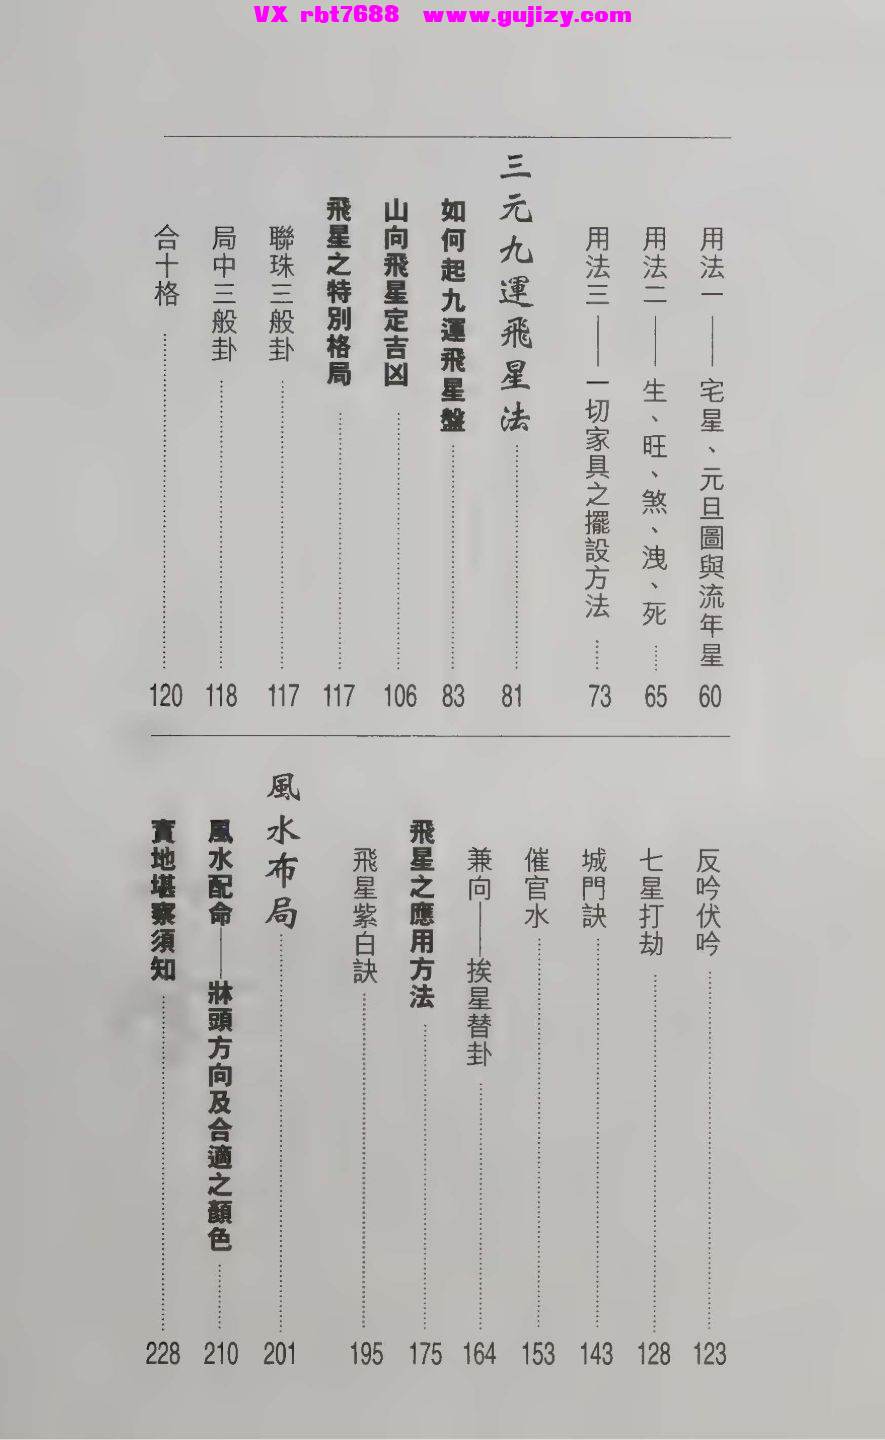 VX rbt7688 www.gujizy.com
用法一——宅星、元旦圖與流年星 60
用法二——生、旺、煞、洩、死……65
用法三——一切家具之擺設方法……73
三元九運飛星法……81
如何起九運飛星盤……83
山向飛星定吉凶……106
飛星之特別格局……117
聯珠三般卦……117
局中三般卦……118
合十格……120
反吟伏吟……123
七星打劫……128
城門訣……143
催官水……153
兼向——挨星替卦……164
飛星之應用方法……175
飛星紫白訣……195
風水布局……201
風水配命——牀頭方向及合適之顏色……210
實地堪察須知……228